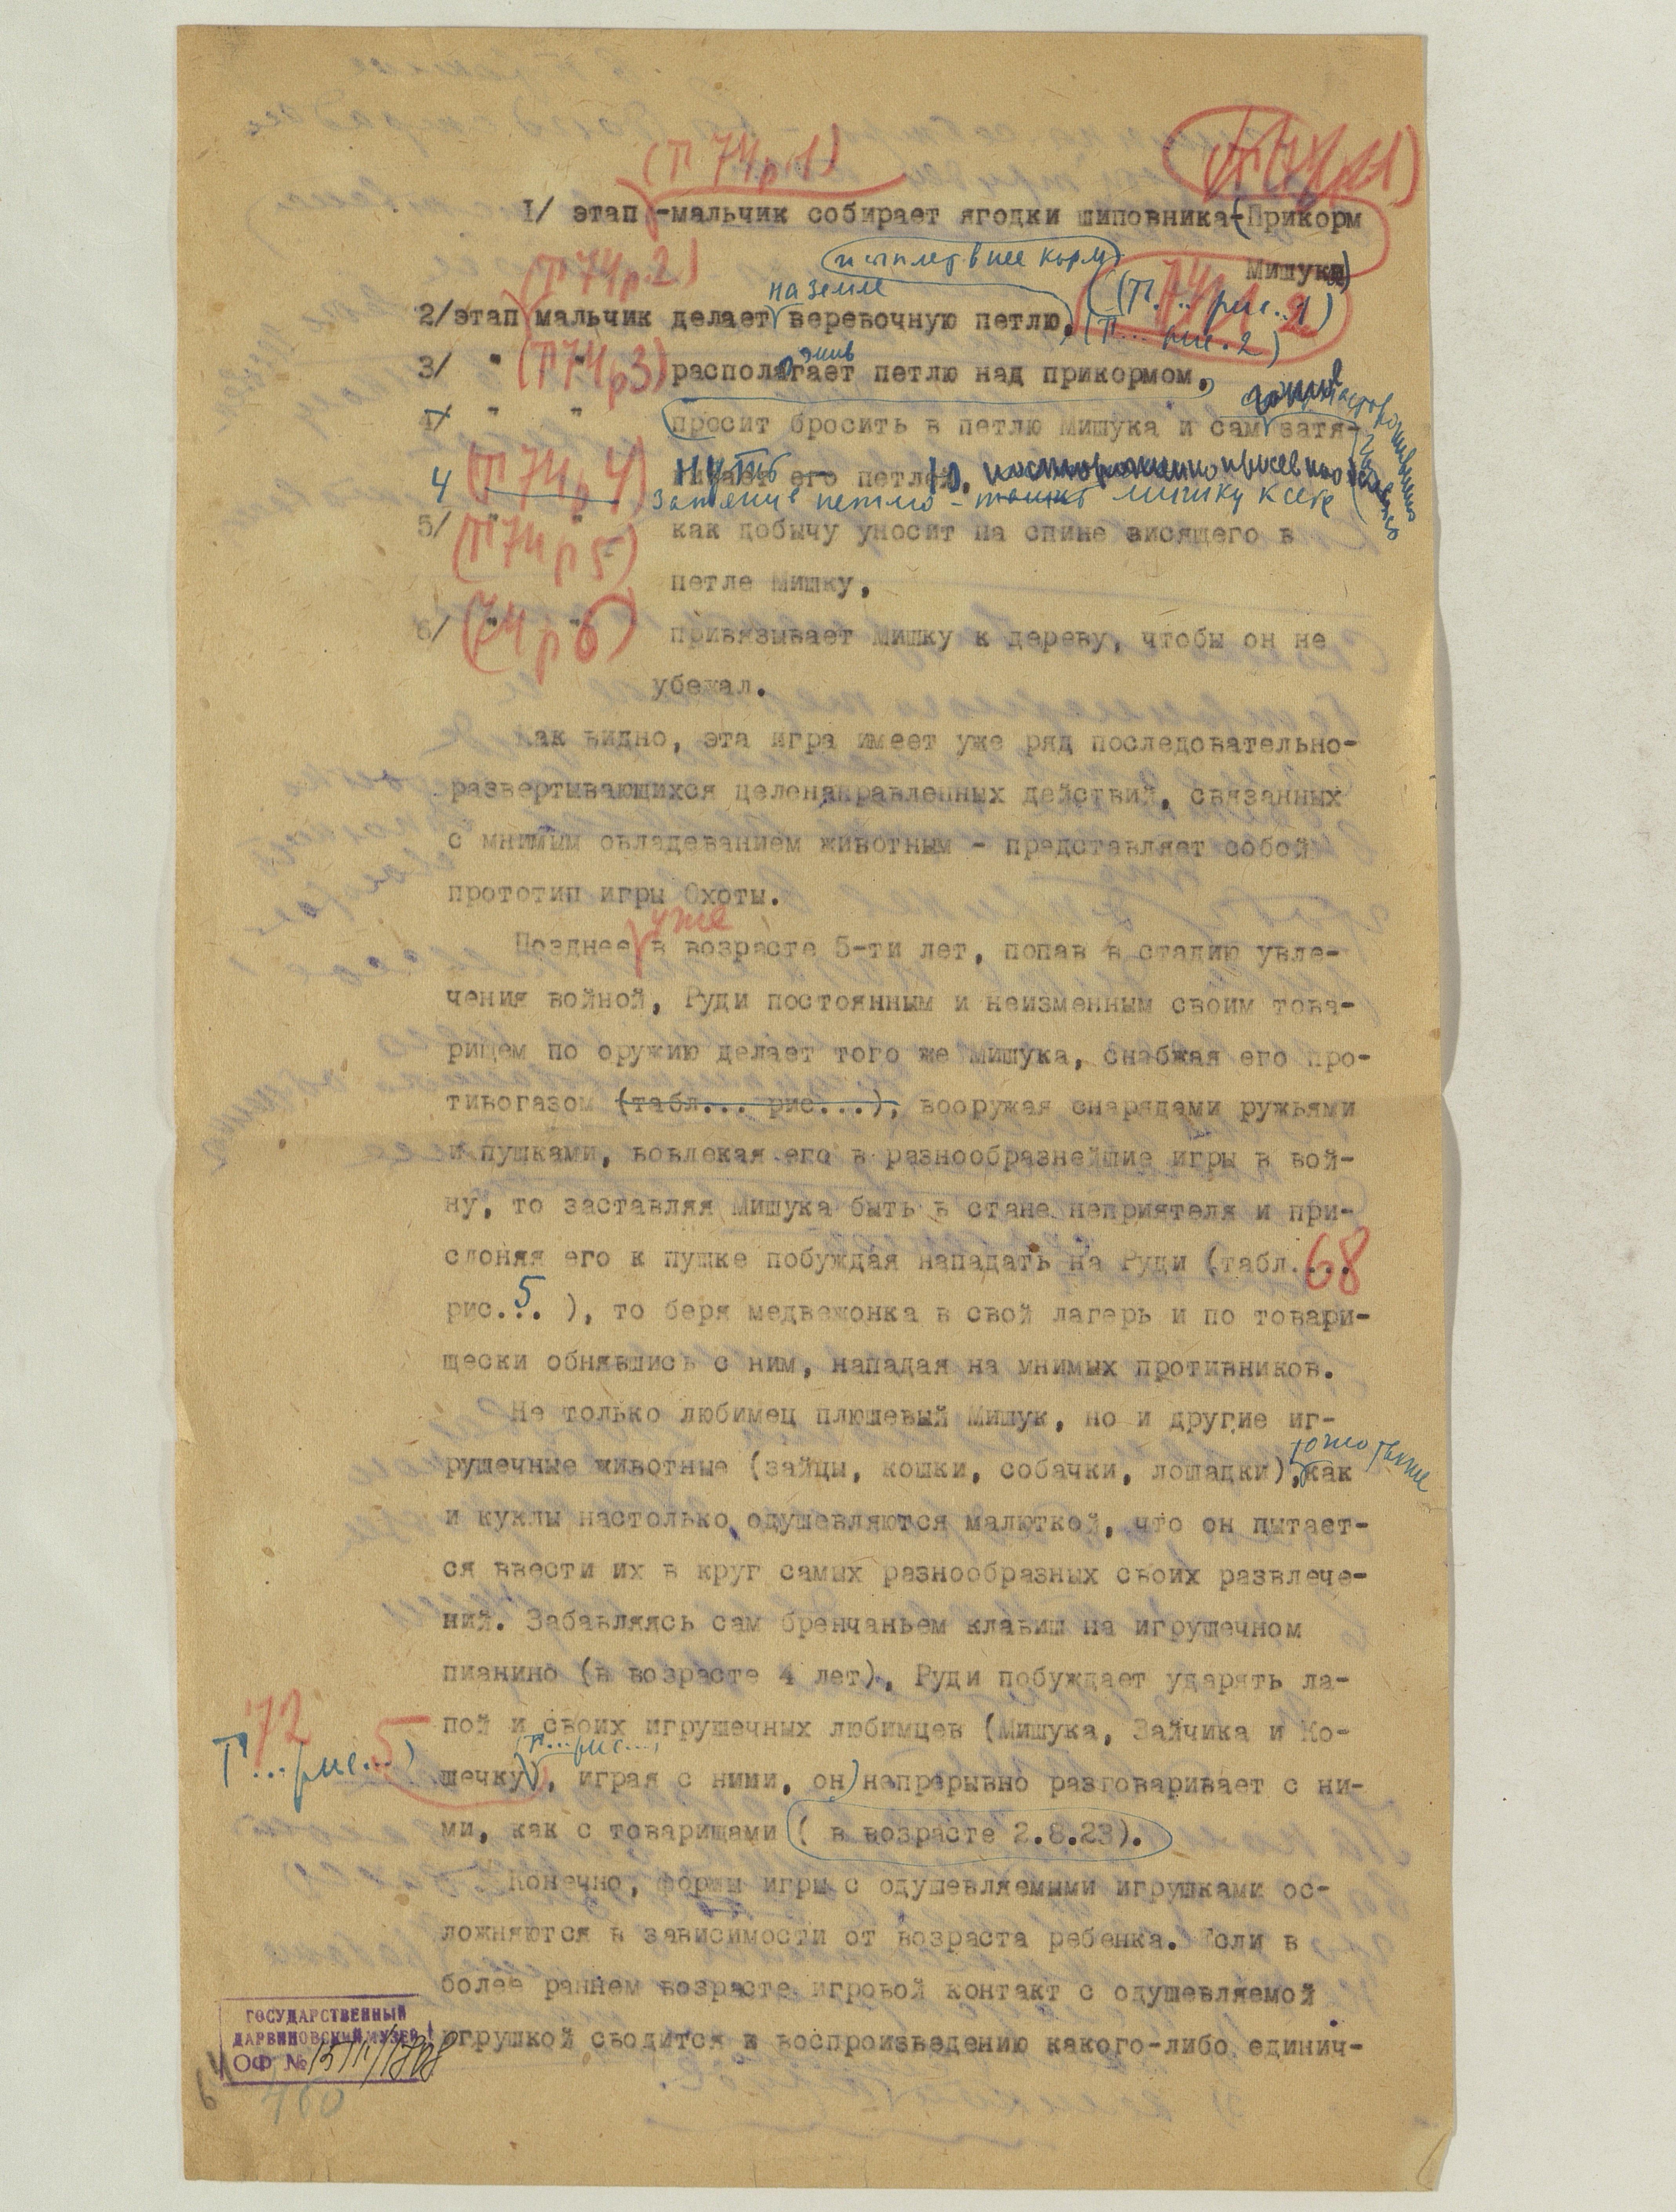 (Т 74 р 1)
1/ этап -мальчик собирает ягодки шиповника-(Прикорм
Мишука)
(Т 74 р. 2)
и сыплет в нее корм
на земле
(Т... рис..1)
2/этап мальчик делает веревочную петлю, (Т... рис. 2)
3/ " (Т 74 р 3) располагает петлю над прикормом,
4/ " " просит бросить в петлю Мишука и сам затя-
4 (Т 74 р 4) гивает его петлей,
затянув петлю - мишку к себе
5/ (Т 74 р 5) как добычу уносит на спине висящего в
петле Мишку,
6/ (74 р 6) привязывает Мишку к дереву, чтобы он не
убежал.
Как видно, эта игра имеет уже ряд последовательно-
развертывающихся целенаправленных действий, связанных
с мнимым овладеванием животным - представляет собой
прототип игры Охоты.
уже
Позднее в возрасте 5-ти лет, попав в стадию увле-
чения войной, Руди постоянным и неизменным своим това-
рищем по оружию делает того же Мишука, снабжая его про-
тивогазом (табл... рис...), вооружая снарядами ружьями
и пушками, вовлекая его в разнообразнейшие игры в вой-
ну, то заставляя Мишука быть в стане неприятеля и при-
слоняя его к пушке побуждая нападать на Руди (табл.... 68
рис... 5 ), то беря медвежонка в свой лагерь и по товари-
щески обнявшись с ним, нападая на мнимых противников.
Не только любимец плюшевый Мишук, но и другие иг-
рушечные животные (зайцы, кошки, собачки, лошадки), как
и куклы настолько одушевляются малюткой, что он пытает-
ся ввести их в круг самых разнообразных своих развлече-
ний. Забавляясь сам бренчаньем клавиш на игрушечном
пианино (в возрасте 4 лет), Руди побуждает ударять ла-
72
пой и своих игрушечных любимцев (Мишука, Зайчика и Ко-
Т... рис... 5) Т... рис...,
шечку), играя с ними, он непрерывно разговаривает с ни-
ми, как с товарищами ( в возрасте 2.8.23).
Конечно, формы игры с одушевляемыми игрушками ос-
ложняются в зависимости от возраста ребенка. Если в
более раннем возрасте игровой контакт с одушевляемой
игрушкой сводится к воспроизведению какого-либо единич-
ГОСУДАРСТВЕННЫЙ
ДАРВИНОВСКИЙ МУЗЕЙ
ОФ №